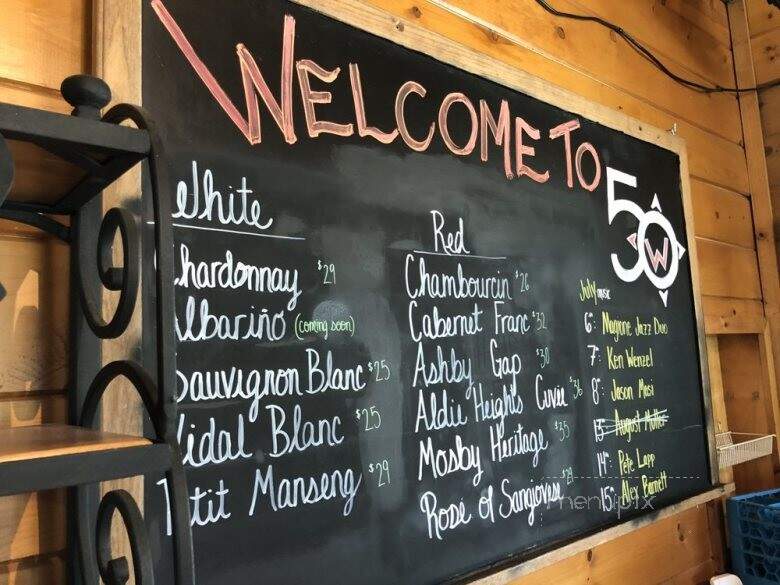 WELCOME TO
50
W
White
Chardonnay $29
Albariño (coming soon)
Sauvignon Blanc $25
Vidal Blanc $25
Petit Manseng $29
Red
Chambourcin $26
Cabernet Franc $32
Ashby Gap $30
Aldie Heights Cuvée $36
Mosby Heritage $35
Rosé of Sangiovese $29
July music
6: Magione Jazz Duo
7: Ken Wenzel
8: Jason Masi
13: August Mutter
14: Pete Lapp
15: Alex Barnett
menupix